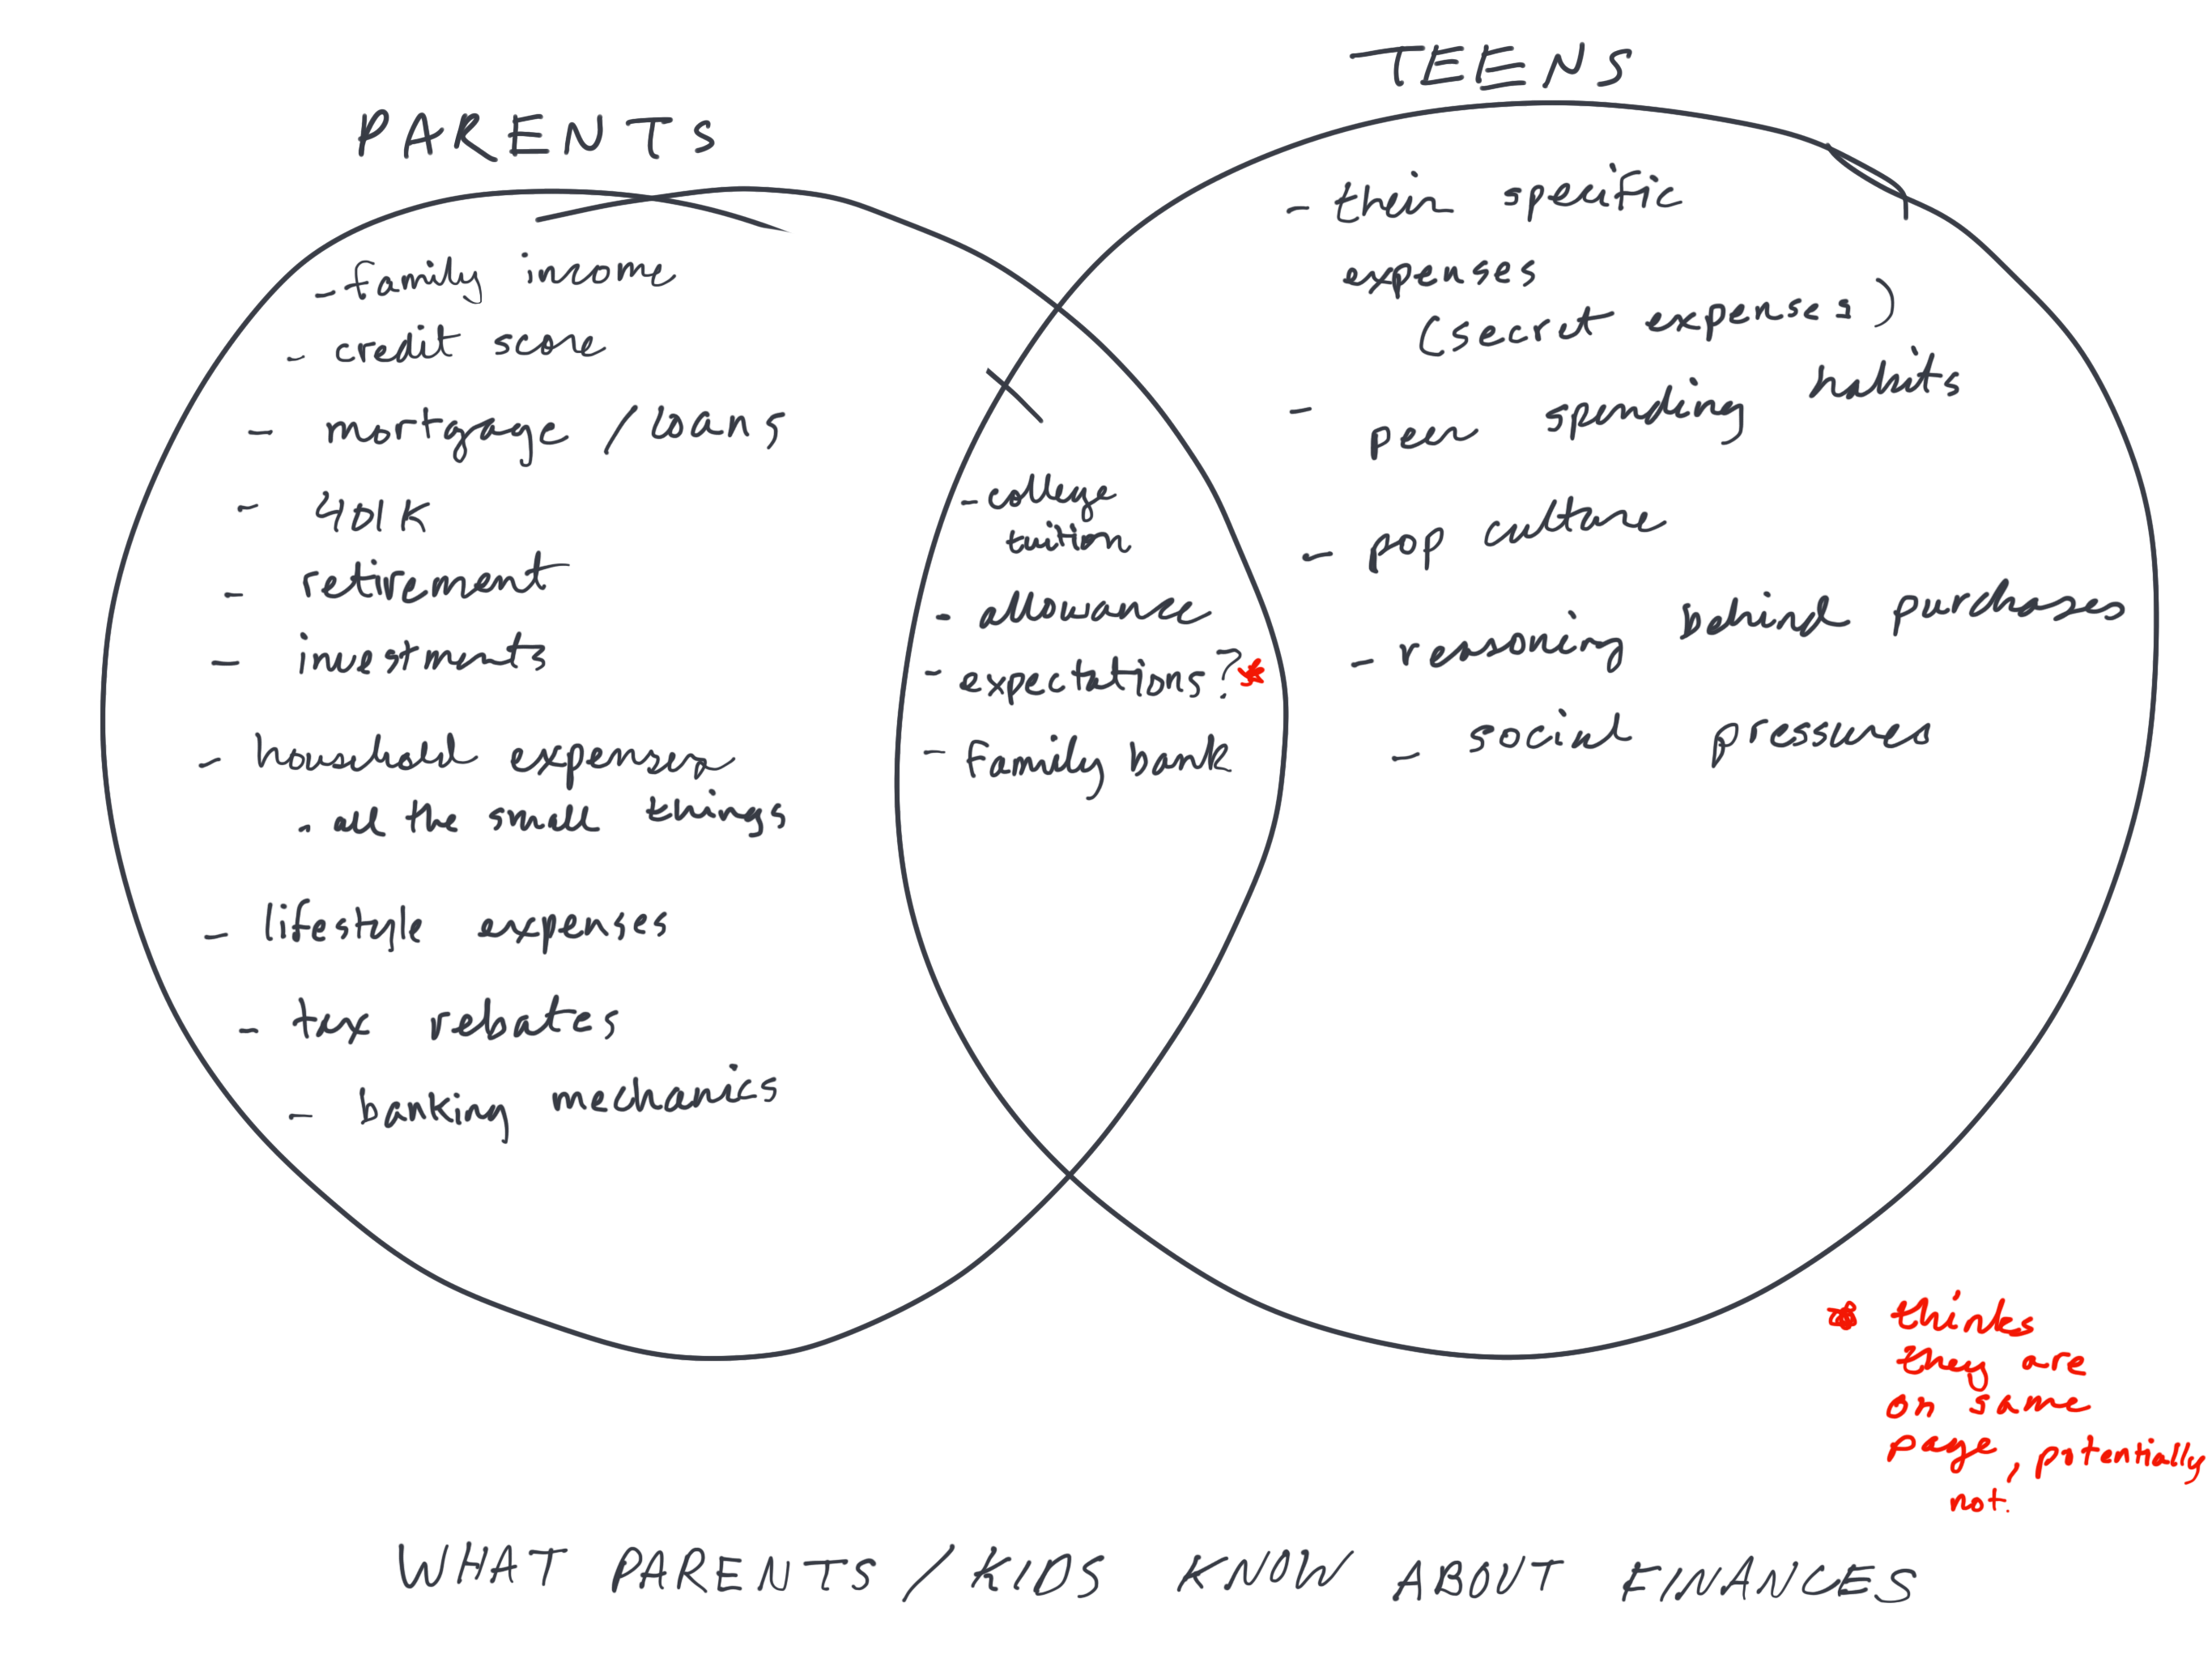 PARENTS
- family income
- credit score
- mortgage / loans
- 401K
- retirement
- investments
- household expenses
- all the small things
- lifestyle expenses
- tax rebates
- banking mechanics
- college
tuition
- allowance
- expectations? *
- Family bank
TEENS
- their specific
expenses
(secret expenses)
- peer spending habits
- pop culture
- reasoning behind purchases
- social pressures
* thinks
they are
on same
page, potentially
not.
WHAT PARENTS / KIDS KNOW ABOUT FINANCES